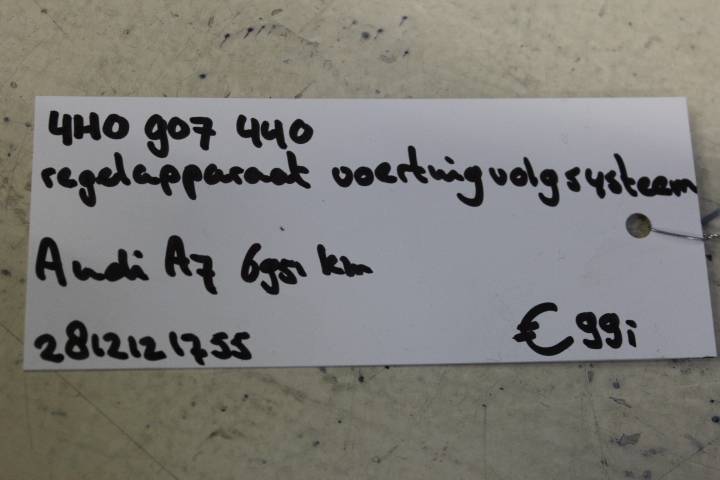 4H0 907 440
regelapparaat voertuigvolgsysteem
Audi A7 6951 km
2812121755
€ 99,